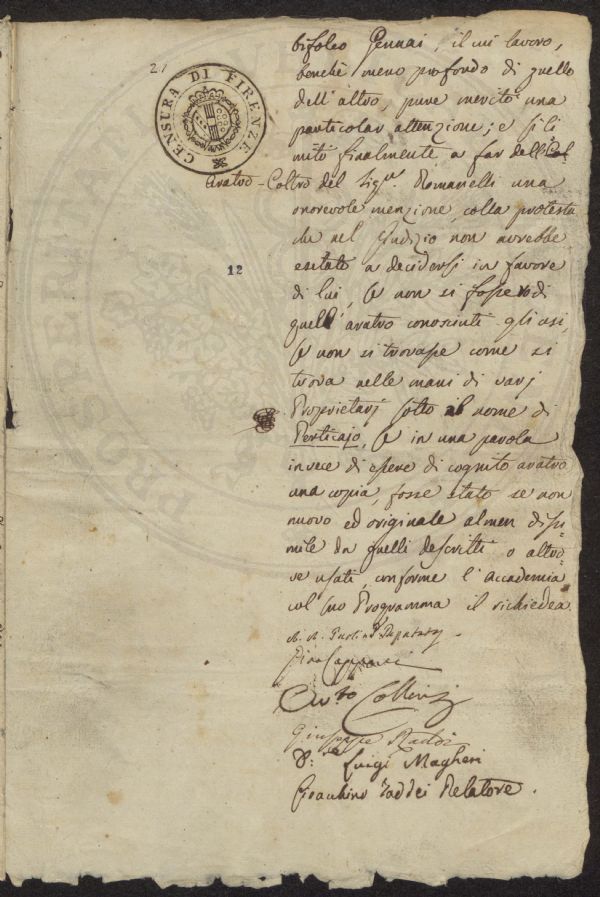 2,
CENSURA DI FIRENZE
bifolco Gennai, il cui lavoro,
benchè meno profondo di quello
dell'altro, pure meritò una
particolar attenzione; e si li
mitò finalmente a far dell'Col
Aratro-Coltro del Sigr. Romanelli una
onorevole menzione, colla protesta
che nel Giudizio non avrebbe
esitato a decidersi in favore
di lui, se non si fossero di
quell'aratro conosciuti gli usi,
se non si trovasse come si
trova nelle mani di varj
Proprietarj sotto il nome di
Perticajo, se in una parola
invece di essere di cognito aratro
una copia, fosse stato se non
nuovo ed originale almen dissi=
mile da quelli descritti o altro=
ve usati, conforme l'Accademia
col suo Programma il richiedea
12
Gino Capponi
Giuseppe Raddi
D: Luigi Magheri
Gioachino Taddei Relatore.